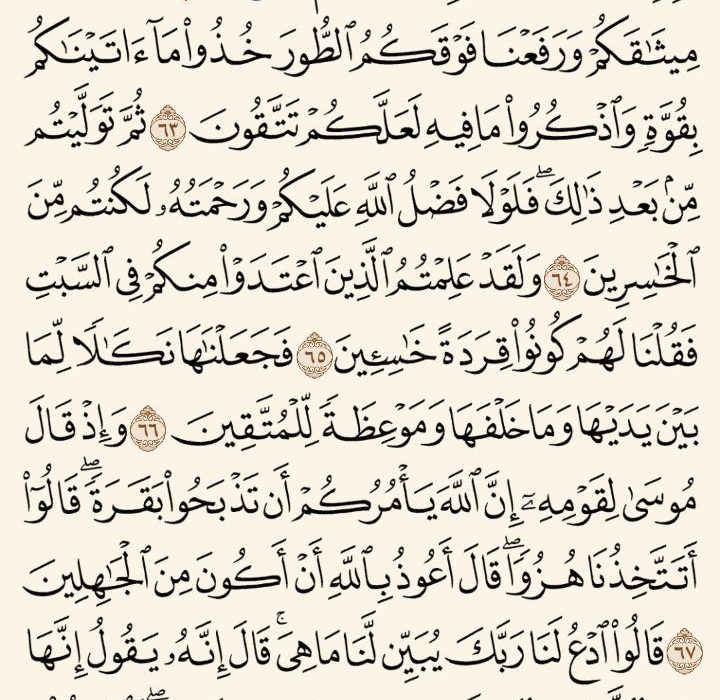 مِيثَٰقَكُمْ وَرَفَعْنَا فَوْقَكُمُ ٱلطُّورَ خُذُوا۟ مَآ ءَاتَيْنَٰكُم
بِقُوَّةٍ وَٱذْكُرُوا۟ مَا فِيهِ لَعَلَّكُمْ تَتَّقُونَ ٦٣ ثُمَّ تَوَلَّيْتُم
مِّنۢ بَعْدِ ذَٰلِكَ ۖ فَلَوْلَا فَضْلُ ٱللَّهِ عَلَيْكُمْ وَرَحْمَتُهُۥ لَكُنتُم مِّنَ
ٱلْخَٰسِرِينَ ٦٤ وَلَقَدْ عَلِمْتُمُ ٱلَّذِينَ ٱعْتَدَوْا۟ مِنكُمْ فِى ٱلسَّبْتِ
فَقُلْنَا لَهُمْ كُونُوا۟ قِرَدَةً خَٰسِـِٔينَ ٦٥ فَجَعَلْنَٰهَا نَكَٰلًا لِّمَا
بَيْنَ يَدَيْهَا وَمَا خَلْفَهَا وَمَوْعِظَةً لِّلْمُتَّقِينَ ٦٦ وَإِذْ قَالَ
مُوسَىٰ لِقَوْمِهِۦٓ إِنَّ ٱللَّهَ يَأْمُرُكُمْ أَن تَذْبَحُوا۟ بَقَرَةً ۖ قَالُوٓا۟
أَتَتَّخِذُنَا هُزُوًا ۖ قَالَ أَعُوذُ بِٱللَّهِ أَنْ أَكُونَ مِنَ ٱلْجَٰهِلِينَ
٦٧ قَالُوا۟ ٱدْعُ لَنَا رَبَّكَ يُبَيِّن لَّنَا مَا هِىَ ۚ قَالَ إِنَّهُۥ يَقُولُ إِنَّهَا